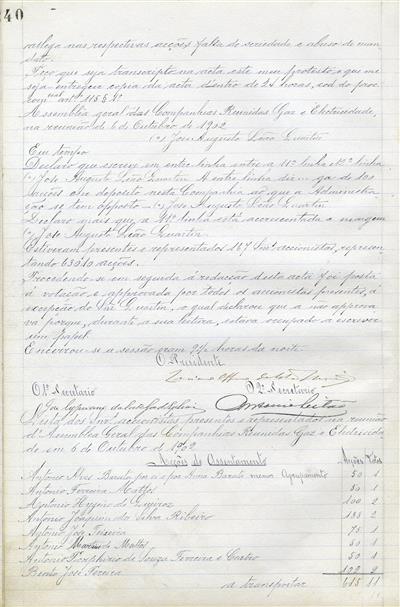 40
allega nas respectivas acções falta de seriedade e abuso de mandato.
Peço que seja transcripto na acta este meu protesto e que me
seja entregue copia da acta dentro de 24 horas, cod. do proc.
comal artº 115 § 1º
Assembléa geral das Companhias Reunidas Gaz e Electricidade,
na reunião de 6 de Outubro de 1902
(a) José Augusto Leão Quartin
Em tempo
Declaro que escrevi em entre linha entre a 11ª linha e 12ª linha
(a) José Augusto Leão Quartin A entre linha diz
acções em deposito nesta Companhia ao que a Administra-
ção se tem opposto (a) José Augusto Leão Quartin
Declaro mais que a linha está accrescentada á margem
(a) José Augusto Leão Quartin
Estiveram presentes e representados 127 Snrs accionistas, represen-
tando acções.
Procedendo-se em seguida á redacção desta acta foi posta
á votação e approvada por todos os accionistas presentes, á
excepção do Snr. Quartin, o qual declarou que a não approva-
va porque, durante a sua leitura, estava occupado a escrever
um papel.
Encerrou-se a sessão eram 24 horas da noite.
O Presidente
O 1º Secretario O 2º Secretario
Lista dos Snrs. accionistas presentes e representados na reunião
d'Assembléa Geral das Companhias Reunidas Gaz e Electricida-
de em 6 de Outubro de 1902
Acções de Assentamento Acções Votos
Antonio Alves Barata por si e por Anna Barata menor Agrupamento 50 1
Antonio Ferreira Mattos 50 1
Antonio Hygino de Queiroz 100 2
Antonio Joaquim da Silva Ribeiro 133 2
Antonio José Teixeira 75 1
Antonio Martins de Mattos 50 1
Antonio Porphirio de Souza Ferreira e Castro 50 1
Bento José Pereira 102 2
a transportar 615 11